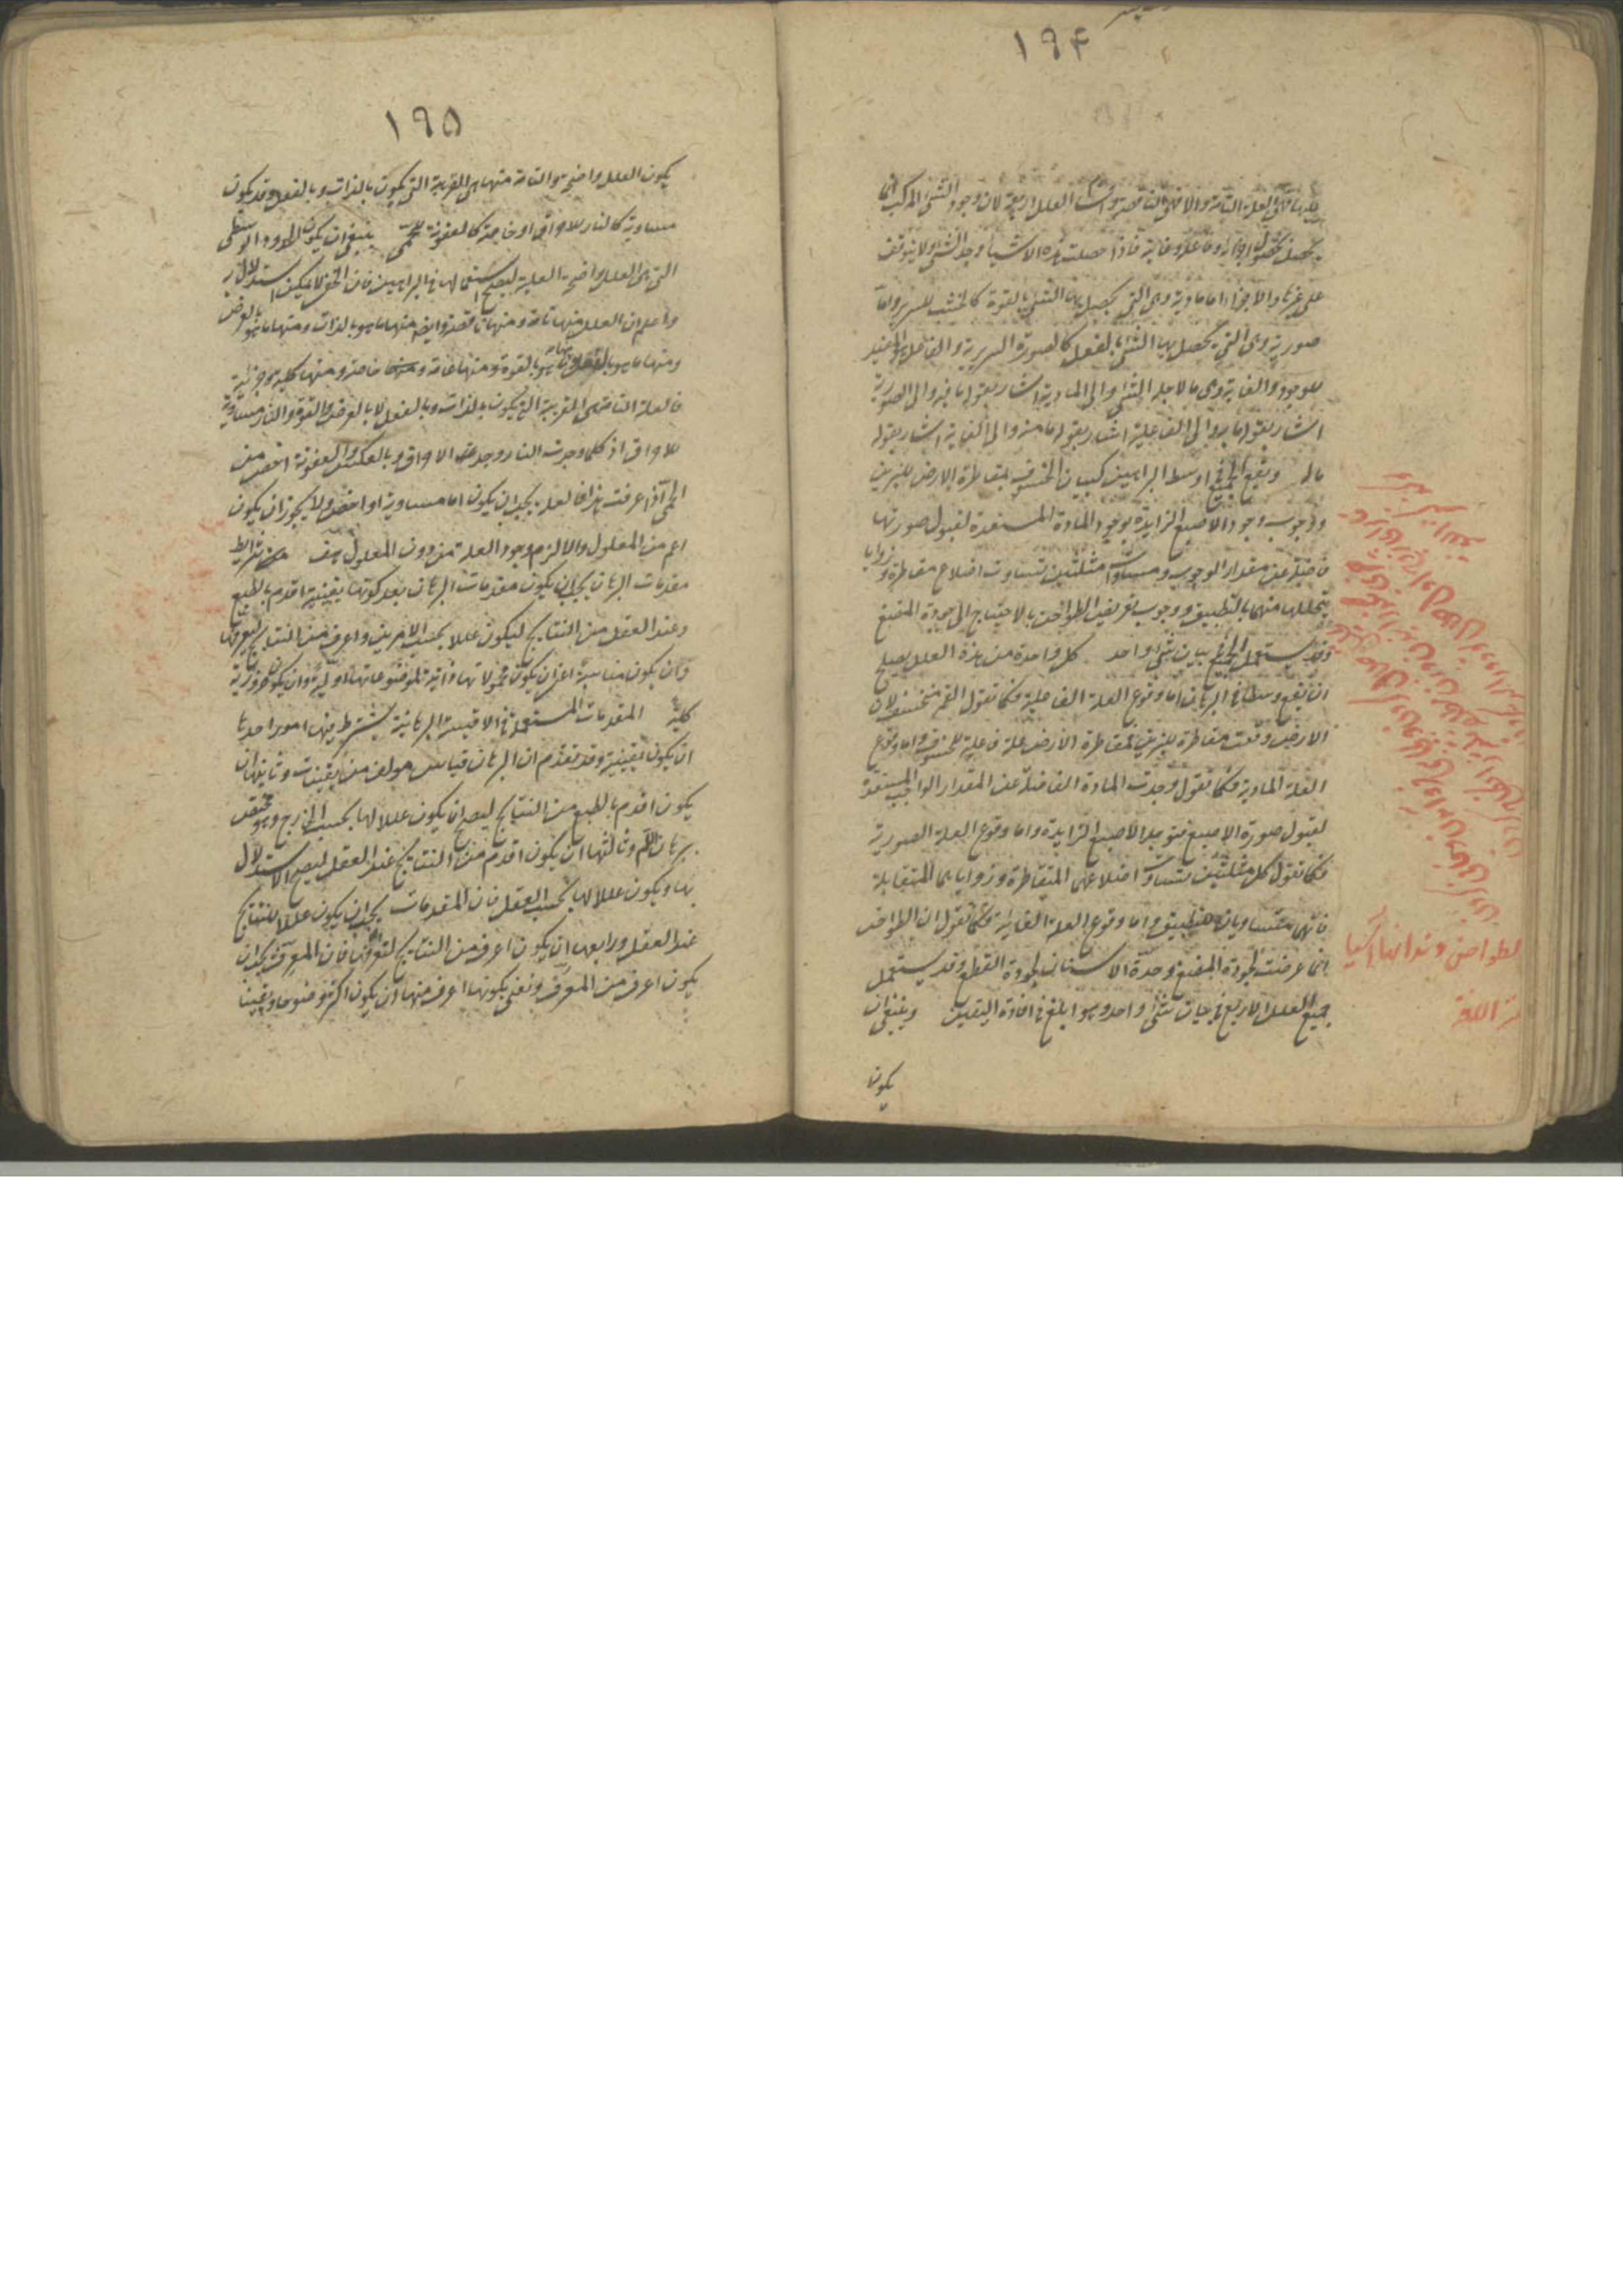 ١٩۴
فهى العلة التامة والا فهى الناقصة واقسام العلل اربعة لان وجود الشئ المركب انما
يحصل بحصول اجزائه وفاعله وغايته فاذا حصلت هذه الاشياء وجد الشئ ولا يتوقف
على غيرها والاجزاء اما مادية وهى التى يحصل بها الشئ بالقوة كالخشب للسرير واما
صورية وهى التى يحصل بها الشئ بالفعل كالصورة السريرية والفاعل هو المفيد
للوجود والغاية وهى ما لاجله الشئ والى المادية اشار بقوله ما فيه والى الصورية
اشار بقوله ما هو والى الفاعلية اشار بقوله ما منه والى الغاية اشار بقوله
ماله ويقع الجميع اوسط البراهين كبيان الخسوف بمقاطرة الارض للنيرين
ووجوب وجود الاصبع الزايدة بوجود المادة المستعدة لقبول صورتها
فاضلة عن مقدار الوجوب ومساواة مثلثين تساوت اضلاع متقاطرة وزوايا
يتخللها منهما بالتطبيق ووجوب تعريض الطواحن بالاحتياج الى جودة المضغ
وقد يستعمل الجميع فى بيان شئ واحد كل واحدة من هذه العلل يصلح
ان يقع وسطا فى البرهان اما وقوع العلة الفاعلية فكما تقول القمر منخسف لان
الارض وقعت مقاطرة للنيرين فمقاطرة الارض علة فاعلية للخسوف واما وقوع
العلة المادية فكما تقول وجدت المادة الفاضلة عن المقدار الواجب المستعدة
لقبول صورة الاصبع فتوجد الاصبع الزايدة واما وقوع العلة الصورية
فكما تقول كل مثلثين تساوت اضلاعهما المتقاطرة وزواياهما المتقابلة
فانهما متساويان للتطبيق واما وقوع العلة الغائية فكما تقول ان الطواحن
انما عرضت لجودة المضغ وحدة الاسنان لجودة القطع وقد يستعمل
جميع العلل الاربع فى بيان شئ واحد وهو ابلغ فى افادة اليقين وينبغى ان
يكون
لطواحن دندانها آسيا
١٩۵
يكون العلل واضحة والتامة منها هى القريبة التى يكون بالذات وبالفعل وقد يكون
مساوية كالنار للاحراق او خاصة كالعفونة للحمى ينبغى ان يكون الحدود الوسطى
التى هى العلل واضحة العلية ليصح استعمالها فى البراهين فان الخفى لا يمكن استدلال به
واعلم ان العلل منها تامة ومنها ناقصة وايضا منها ما هو بالذات ومنها ما هو بالعرض
ومنها ما هو بالفعل ومنها ما هو بالقوة ومنها عامة ومنها خاصة ومنها كلية وجزئية
فالعلة التامة هى القريبة التى يكون بالذات وبالفعل لا بالعرض والقوة والنار مساوية
للاحراق اذ كلما وجدت النار وجد الاحراق وبالعكس والعفونة اخص من
الحمى اذا عرفت هذا فالعلة يجب ان يكون اما مساوية او اخص ولا يجوز ان يكون
اعم من المعلول والا لزم وجود العلة من دون المعلول هف من شرايط
مقدمات البرهان يجب ان يكون مقدمات البرهان بعد كونها يقينية اقدم بالطبع
وعند العقل من النتايج ليكون عللا بحسب الامرين واعرف من النتايج لتعرفها
وان يكون مناسبة اعنى ان يكون محمولاتها ذاتية لموضوعاتها اولية وان يكون ضرورية
كلية المقدمات المستعملة فى الاقيسة البرهانية يشترط فيها امور احدها
ان يكون يقينية وقد تقدم ان البرهان قياس مولف من يقينيات وثانيها ان
يكون اقدم بالطبع من النتايج ليصح ان يكون عللا لها بحسب الخارج وهو يختص
ببرهان اللم وثالثها ان يكون اقدم من النتايج عند العقل ليصح الاستدلال
بها ويكون عللا لها بحسب العقل فان المقدمات يجب ان يكون عللا للنتايج
عند العقل ورابعها ان يكون اعرف من النتايج لتعرفها فان المعرف يجب ان
يكون اعرف من المعرف ونعنى بكونها اعرف منها ان يكون اكثر وضوحا ويقينا